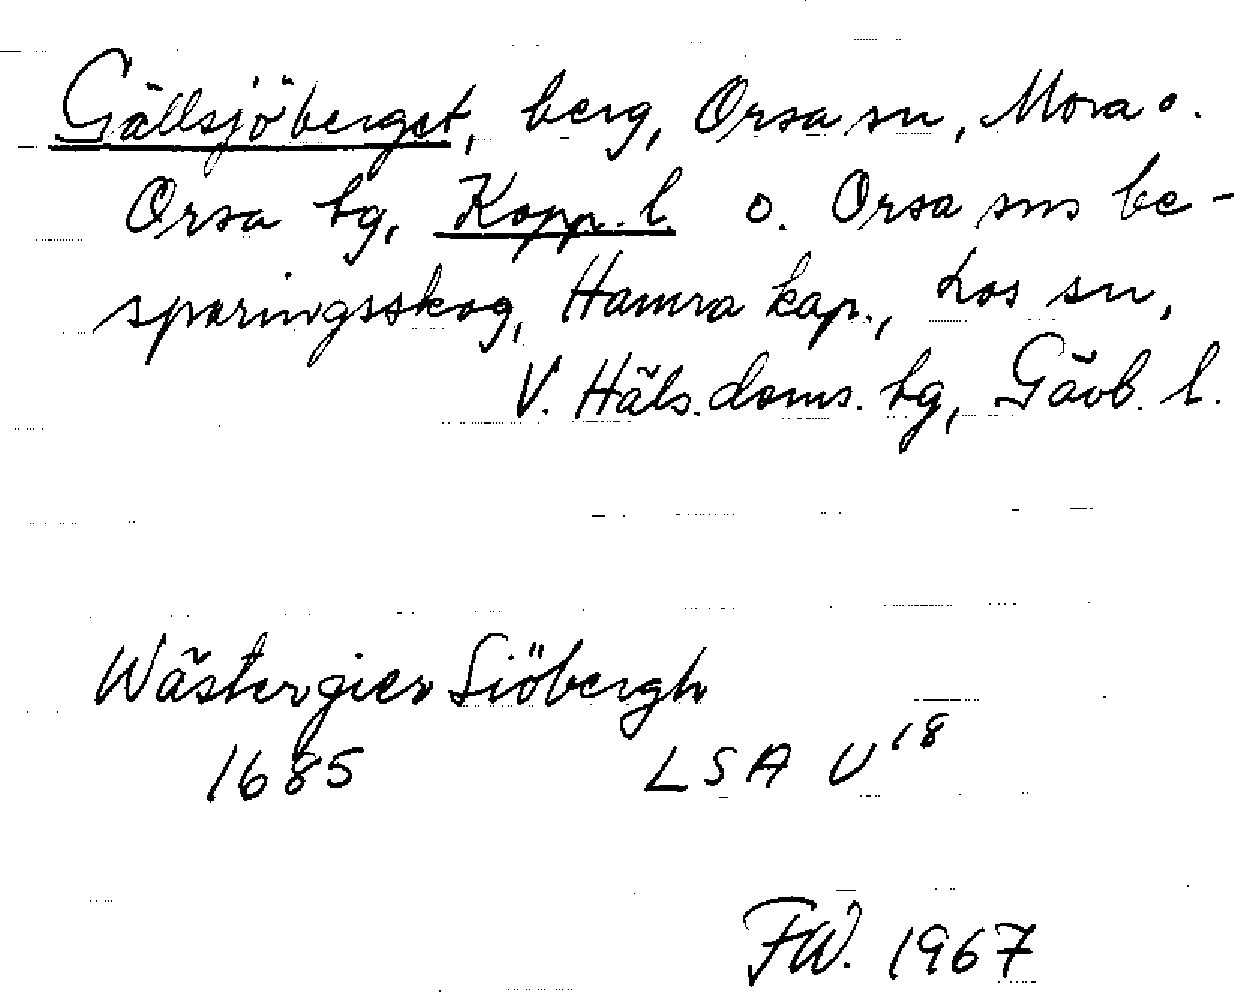 Gällsjöberget, berg, Orsa sn, Mora o.
Orsa tg, Kopp. l. o. Orsa sns be-
sparingsskog, Hamra kap., Los sn,
V. Häls. doms. tg, Gävb. l.
Wästergier Siöbergh
1685 LSA U18
FW. 1967